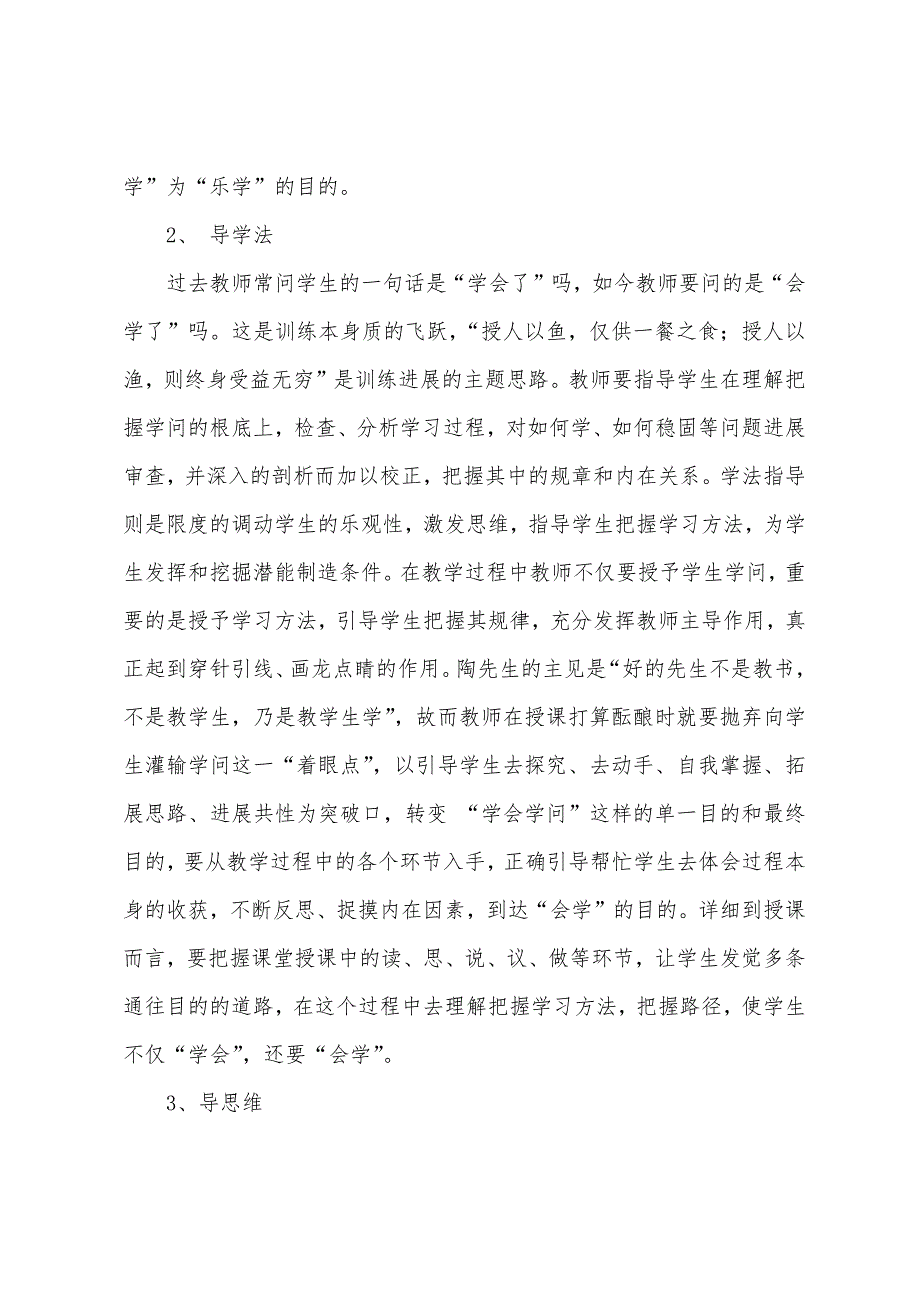 学”为“乐学”的目的。
2、 导学法
过去教师常问学生的一句话是“学会了”吗，如今教师要问的是“会
学了”吗。这是训练本身质的飞跃，“授人以鱼，仅供一餐之食；授人以
渔，则终身受益无穷”是训练进展的主题思路。教师要指导学生在理解把
握学问的根底上，检查、分析学习过程，对如何学、如何稳固等问题进展
审查，并深入的剖析而加以校正，把握其中的规章和内在关系。学法指导
则是限度的调动学生的乐观性，激发思维，指导学生把握学习方法，为学
生发挥和挖掘潜能制造条件。在教学过程中教师不仅要授予学生学问，重
要的是授予学习方法，引导学生把握其规律，充分发挥教师主导作用，真
正起到穿针引线、画龙点睛的作用。陶先生的主见是“好的先生不是教书，
不是教学生，乃是教学生学”，故而教师在授课打算酝酿时就要抛弃向学
生灌输学问这一“着眼点”，以引导学生去探究、去动手、自我掌握、拓
展思路、进展共性为突破口，转变 “学会学问”这样的单一目的和最终
目的，要从教学过程中的各个环节入手，正确引导帮忙学生去体会过程本
身的收获，不断反思、捉摸内在因素，到达“会学”的目的。详细到授课
而言，要把握课堂授课中的读、思、说、议、做等环节，让学生发觉多条
通往目的的道路，在这个过程中去理解把握学习方法，把握路径，使学生
不仅“学会”，还要“会学”。
3、导思维